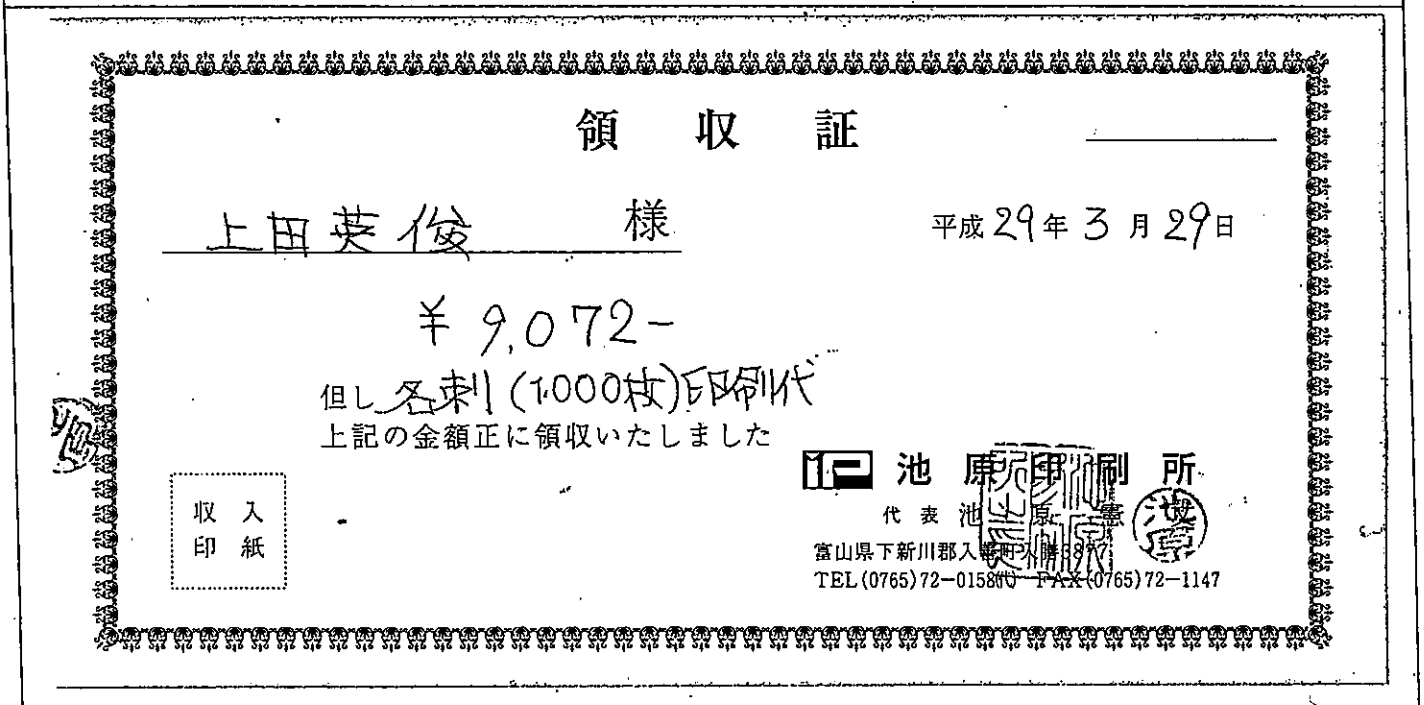 領収証
上田英俊 様
平成29年3月29日
¥9,072-
但し 名刺(1,000枚)印刷代
上記の金額正に領収いたしました
収入
印紙
池原印刷所
代表 池原憲
富山県下新川郡入善町入膳3877
TEL(0765)72-0158㈹ FAX(0765)72-1147
池原